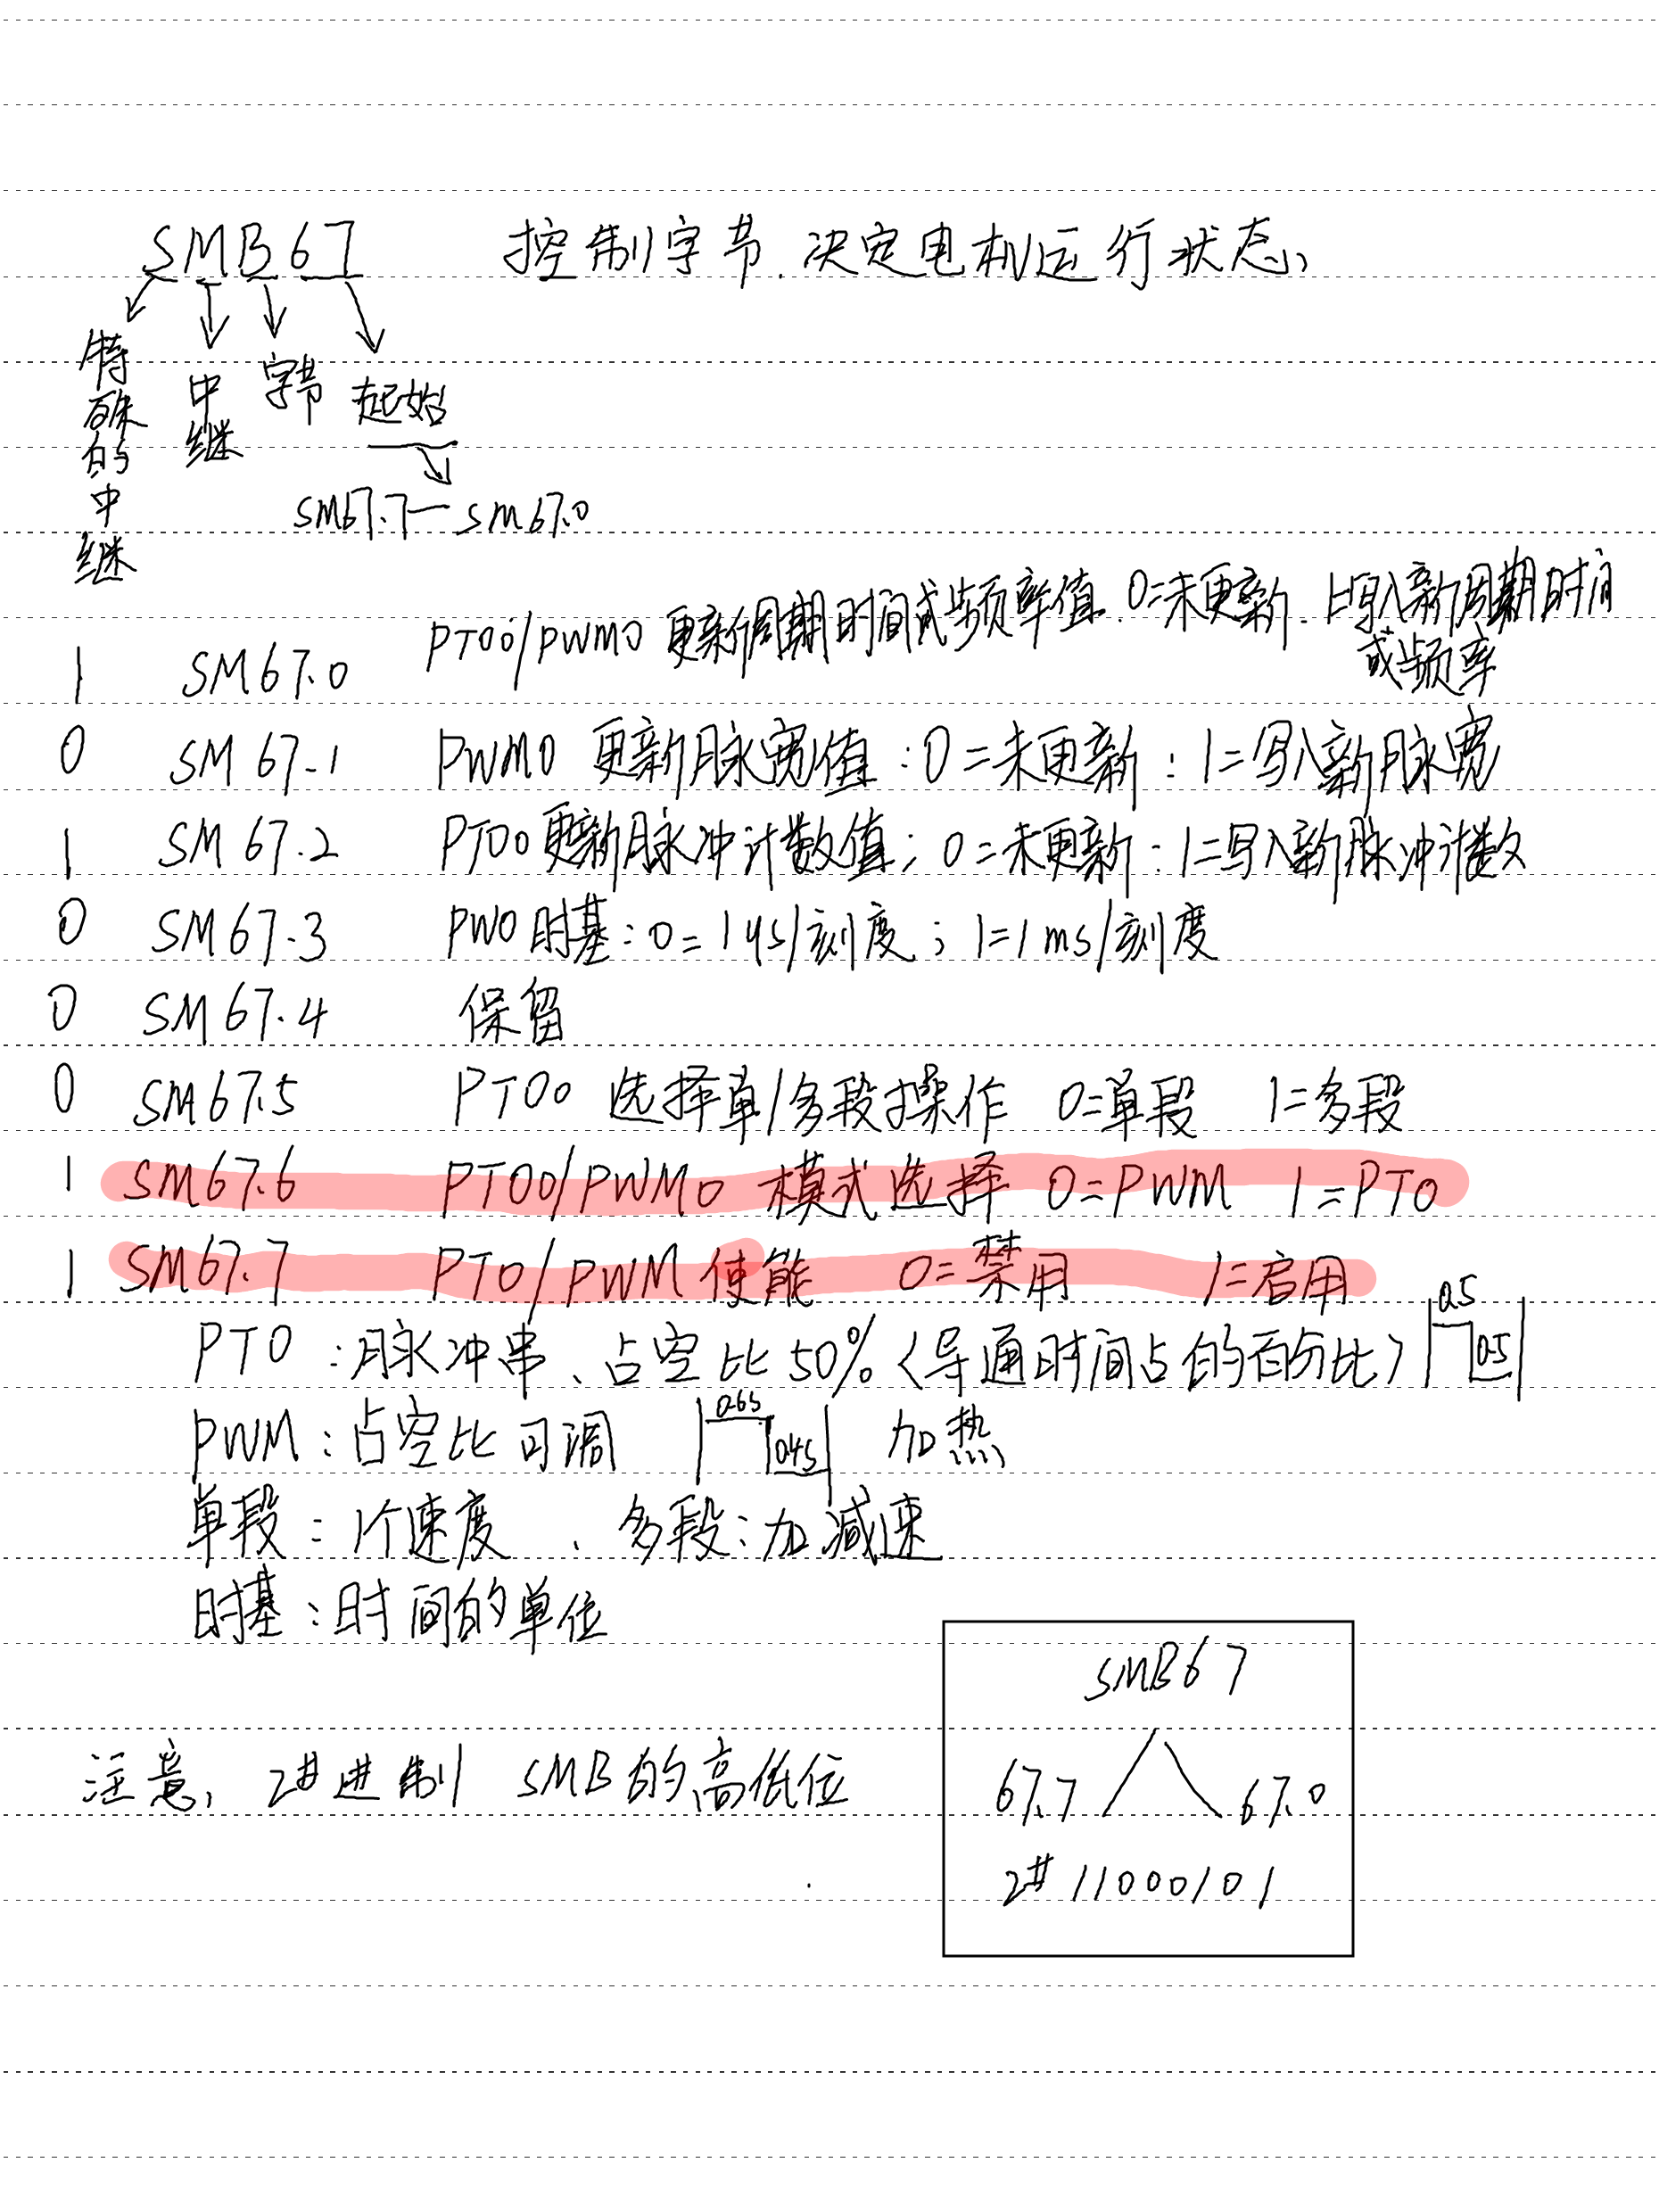 SMB67 控制字节.决定电机运行状态、
特殊的中继 中继 字节 起始
SM67.7—SM67.0
PTO0/PWM0 更新周期时间或频率值.0=未更新.1=写入新周期时间
1 SM67.0 或频率
0 SM67.1 PWM0 更新脉宽值:0=未更新:1=写入新脉宽
1 SM67.2 PTO0更新脉冲计数值;0=未更新:1=写入新脉冲计数
0 SM67.3 PW0时基:0=1μs/刻度;1=1ms/刻度
0 SM67.4 保留
0 SM67.5 PTO0 选择单/多段操作 0=单段 1=多段
1 SM67.6 PTO0/PWM0 模式选择 0=PWM 1=PTO
1 SM67.7 PTO/PWM 使能 0=禁用 1=启用
PTO:脉冲串、占空比50%(导通时间占的百分比) 0.5 0.5
PWM:占空比可调 0.6s 0.4s 加热
单段:1个速度、多段:加减速
时基:时间的单位
SMB67
注意、2#进制 SMB的高低位
67.7 67.0
2#11000101